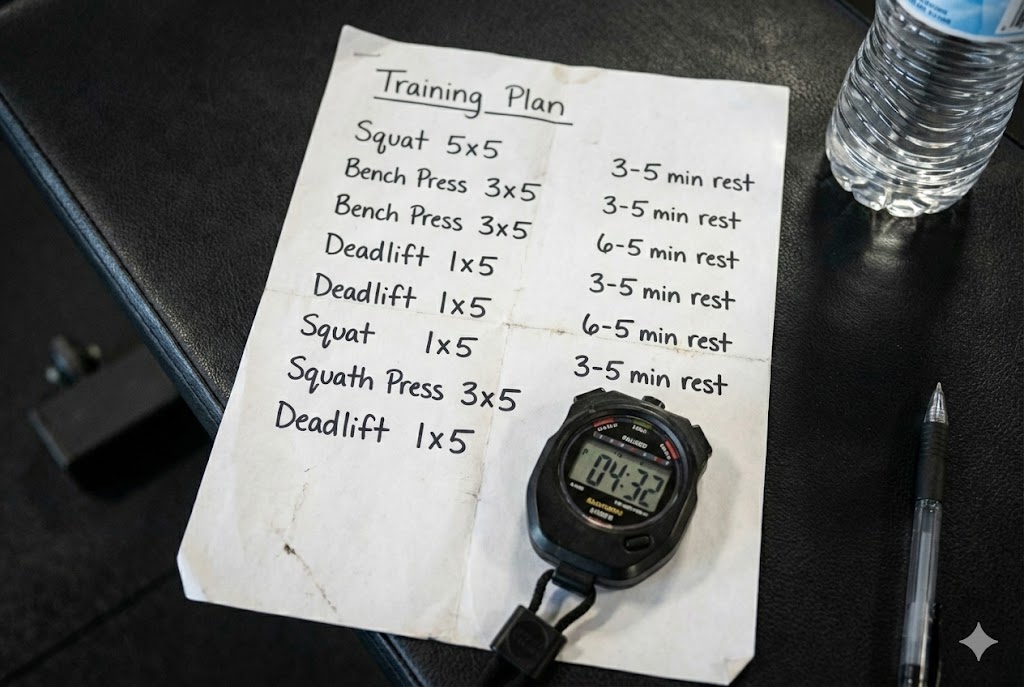 Training Plan
Squat 5x5
3-5 min rest
Bench Press 3x5
3-5 min rest
Bench Press 3x5
6-5 min rest
Deadlift 1x5
3-5 min rest
Deadlift 1x5
6-5 min rest
Squat 1x5
3-5 min rest
Squath Press 3x5
Deadlift 1x5
04:32